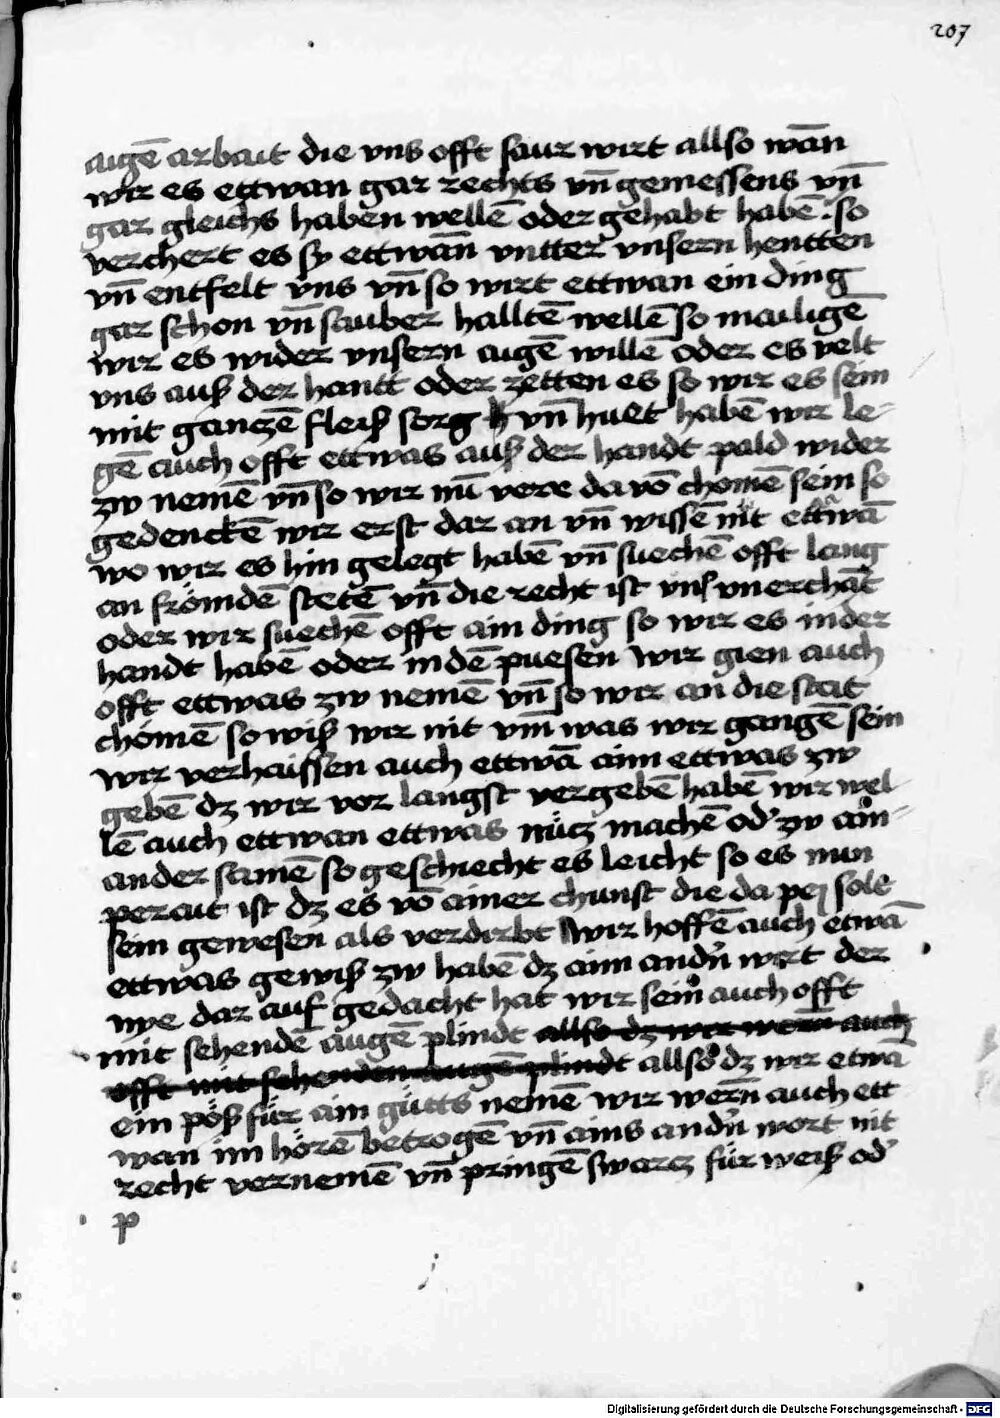 207
aigē arbait die vns offt saur wirt allso wān
wir es ettwan gar rechts vn̄ gemessens vn̄
gar gleichs haben wellē oder gehabt habē. so
verchert es sy ettwān vntter vnsern hentten
vn̄ entfelt vns vn̄ so wirt ettwan ein ding
gar schon vn̄ sauber halltē wellē so mailigē
wir es wider vnsern aigē willē oder es velt
vns auß der hantt oder zetten es so wir es sein
mit ganczē fleiß sorg vn̄ huet habē wir le-
gē auch offt ettwas auß der handt pald wider
zw nemē vn̄ so wir nū vere da vō chomē sein so
gedenckē wir erst dar an vn̄ wissē nit ettwā
wo wir es hin gelegt habē vn̄ suechē offt lang
an frömdē stetē vn̄ die recht ist vnß vnerchāt
oder wir suechē offt ain ding so wir es in der
handt habē oder in dē puesen wir gien auch
offt ettwas zw nemē vn̄ so wir an die stat
chömē so wiß wir nit vm̄ was wir gangē sein
wir verhaissen auch ettwā ainn ettwas zw
gebē dz wir vor langst vergebē habē wir wel-
lē auch ettwan ettwas nücz machē od' zw ain-
ander samē so geschiecht es leicht so es nun
perait ist dz es vō ainer chunst die da pej solt
sein gewesen als verdirbt wir hoffē auch etwā
ettwas gewiß zw habē dz ainn andn̄ wirt der
nye dar auf gedacht hat wir sein auch offt
mit sehendē augē plindt allso dz wir wern̄ auch
offt mit sehenden augē plindt allso dz wir etwā
ein pöß für ain gütts nemē wir wern̄ auch ett
wan im hörē betrogē vn̄ ains andn̄ wort nit
recht vernemē vn̄ pringē swarcz für weiß od'
p
Digitalisierung gefördert durch die Deutsche Forschungsgemeinschaft - DFG